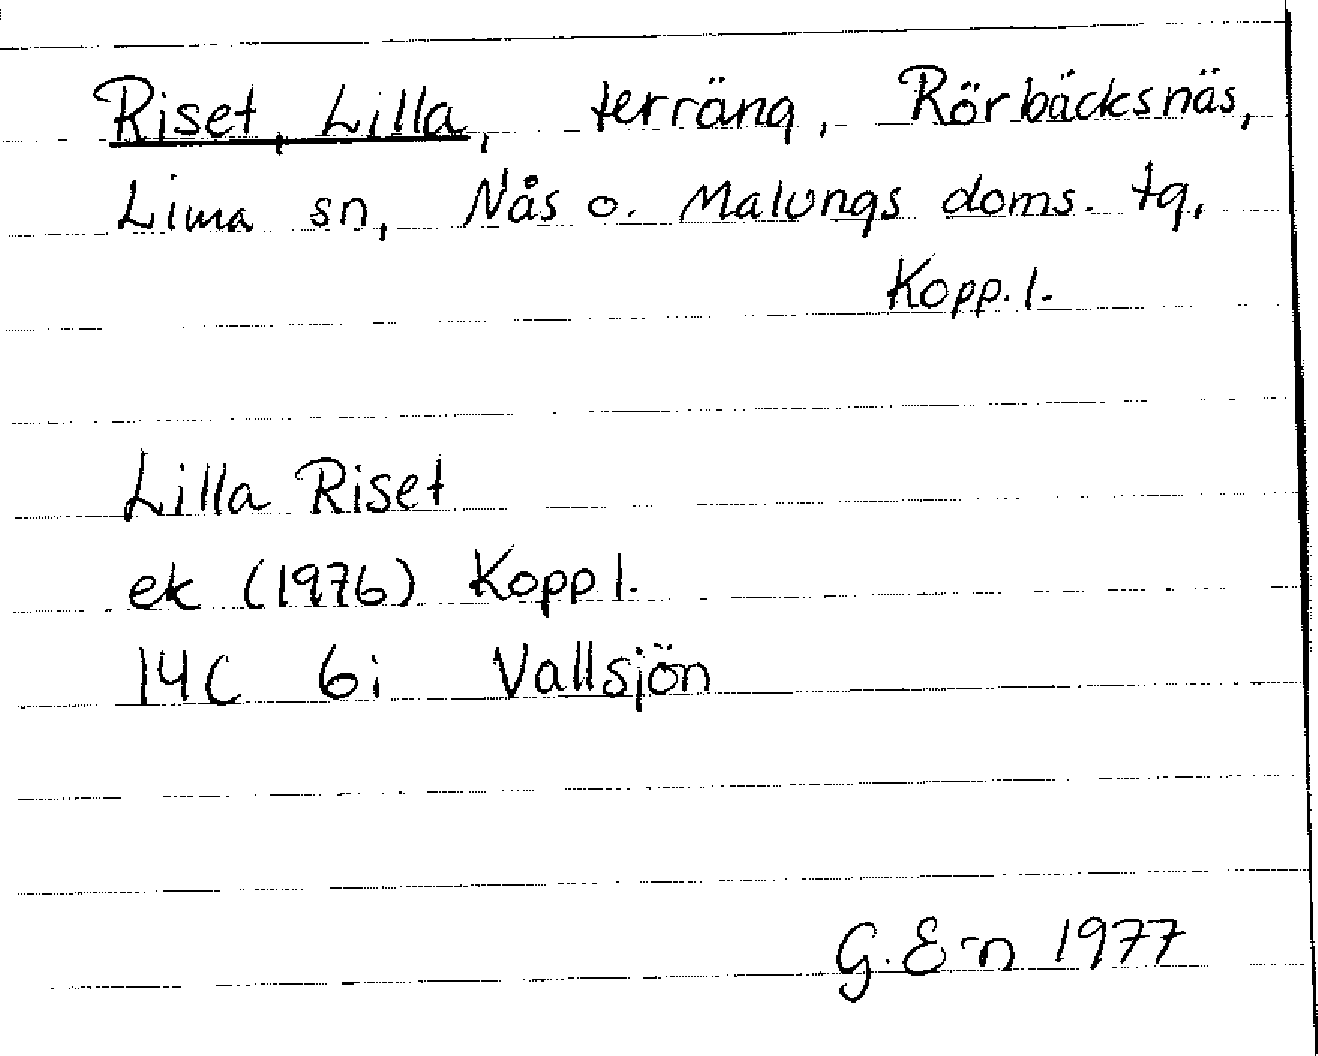 Riset, Lilla, terräng, Rörbäcksnäs,
Lima sn, Nås o. Malungs doms. tg,
Kopp. l.
Lilla Riset
ek (1976) Kopp l.
14C 6i Vallsjön
G. E-n 1977